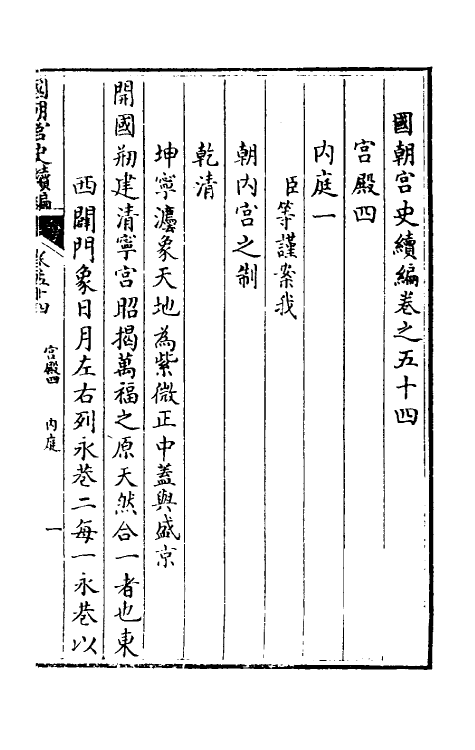 國朝宫史續編卷之五十四
宫殿四
内庭一
臣等謹案我
朝内宫之制
乾清
坤寧灋象天地為紫微正中蓋與盛京
開國剏建清寧宫昭揭萬福之原天然合一者也東
西闢門象日月左右列永巷二每一永巷以
國朝宫史續編
卷五十四
宫殿四 内庭
一